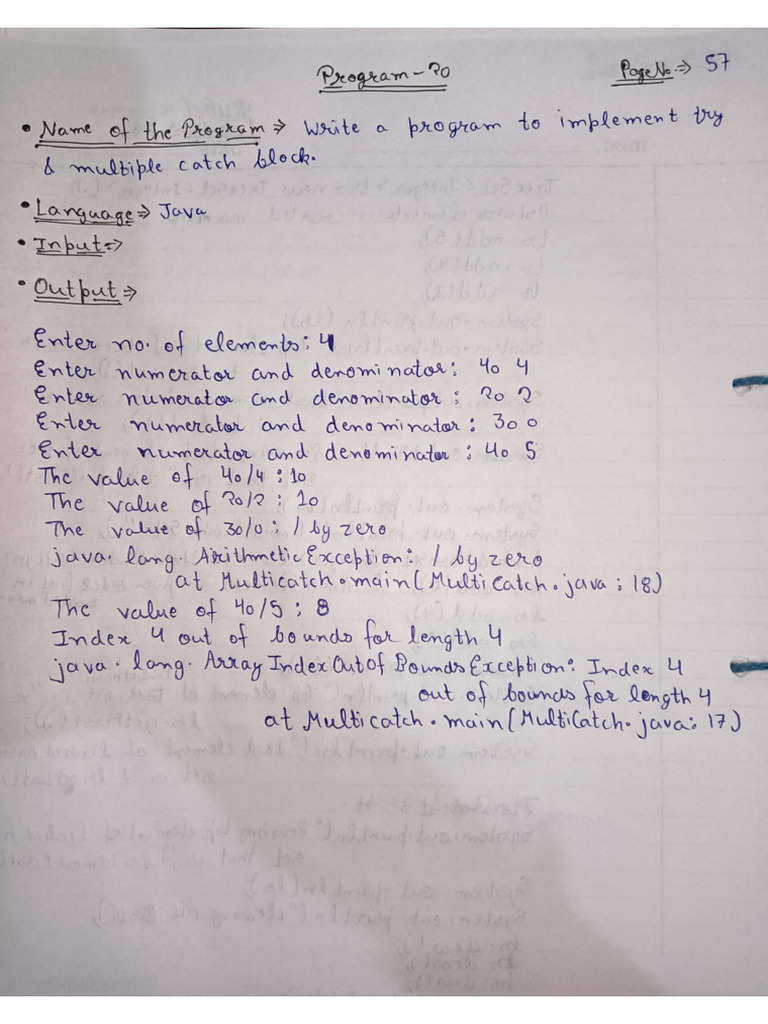 Program-20
Page No.⇒ 57
• Name of the Program ⇒ Write a program to implement try
& multiple catch block.
• Language ⇒ Java
• Input ⇒
• Output ⇒
Enter no. of elements: 4
Enter numerator and denominator: 40 4
Enter numerator and denominator: 20 2
Enter numerator and denominator: 30 0
Enter numerator and denominator: 40 5
The value of 40/4 : 10
The value of 20/2 : 10
The value of 30/0 : / by zero
java.lang.ArithmeticException: / by zero
at Multicatch.main(MultiCatch.java:18)
The value of 40/5 : 8
Index 4 out of bounds for length 4
java.lang.ArrayIndexOutOfBoundsException: Index 4
out of bounds for length 4
at Multicatch.main(MultiCatch.java:17)